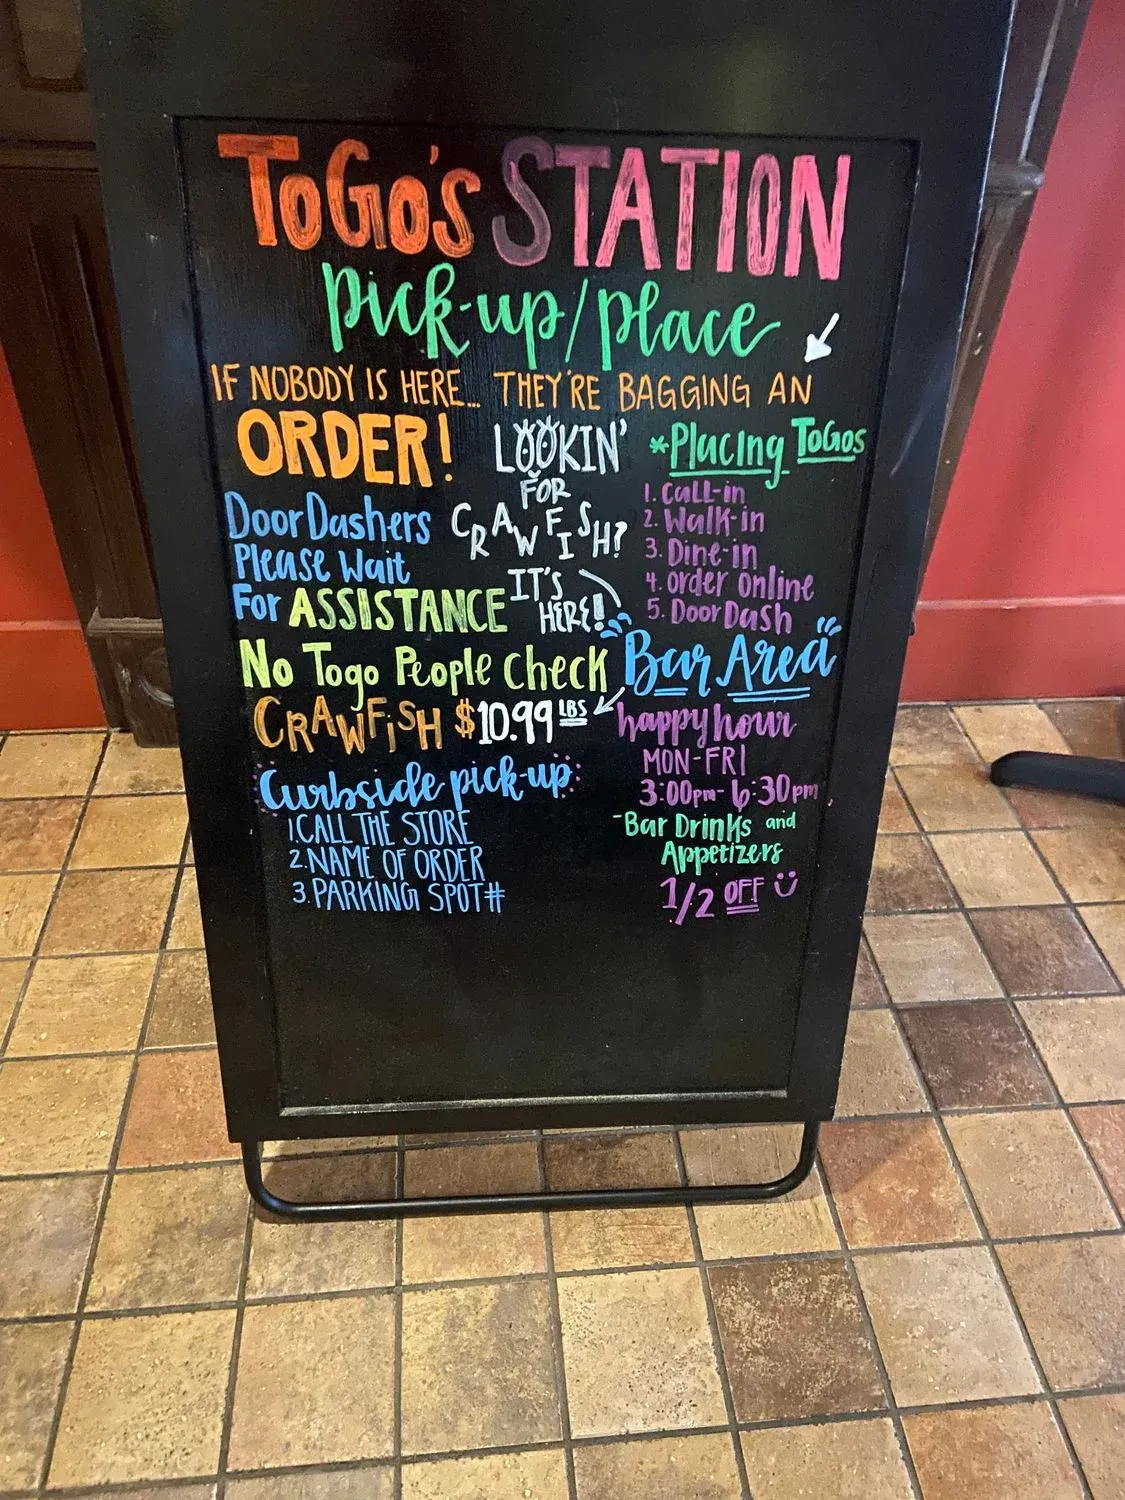 ToGo's STATION
Pick-up/Place
IF NOBODY IS HERE... THEY'RE BAGGING AN
ORDER!
LOOKIN'
FOR
CRAWFISH?
IT'S
HERE!
*Placing ToGos
1. Call-in
2. Walk-in
3. Dine-in
4. Order Online
5. DoorDash
DoorDashers
Please Wait
For ASSISTANCE
No Togo People Check
CRAWFISH $10.99 LBS
Curbside pick-up
1.CALL THE STORE
2.NAME OF ORDER
3.PARKING SPOT#
Bar Area
happy hour
MON-FRI
3:00pm-6:30pm
-Bar Drinks and
Appetizers
1/2 OFF